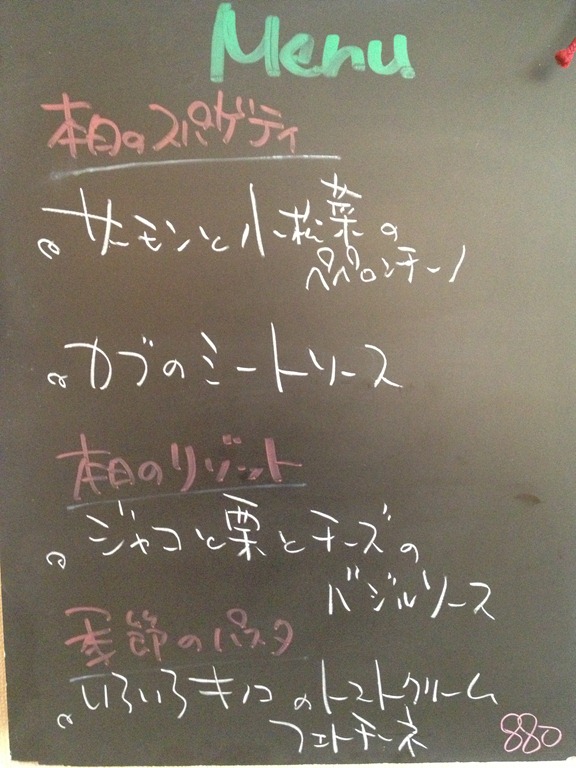 Menu
本日のスパゲティ
サーモンと小松菜の
ペペロンチーノ
カブのミートソース
本日のリゾット
ジャコと栗とチーズの
バジルソース
季節のパスタ
いろいろキノコのトマトクリーム
フェトチーネ
880